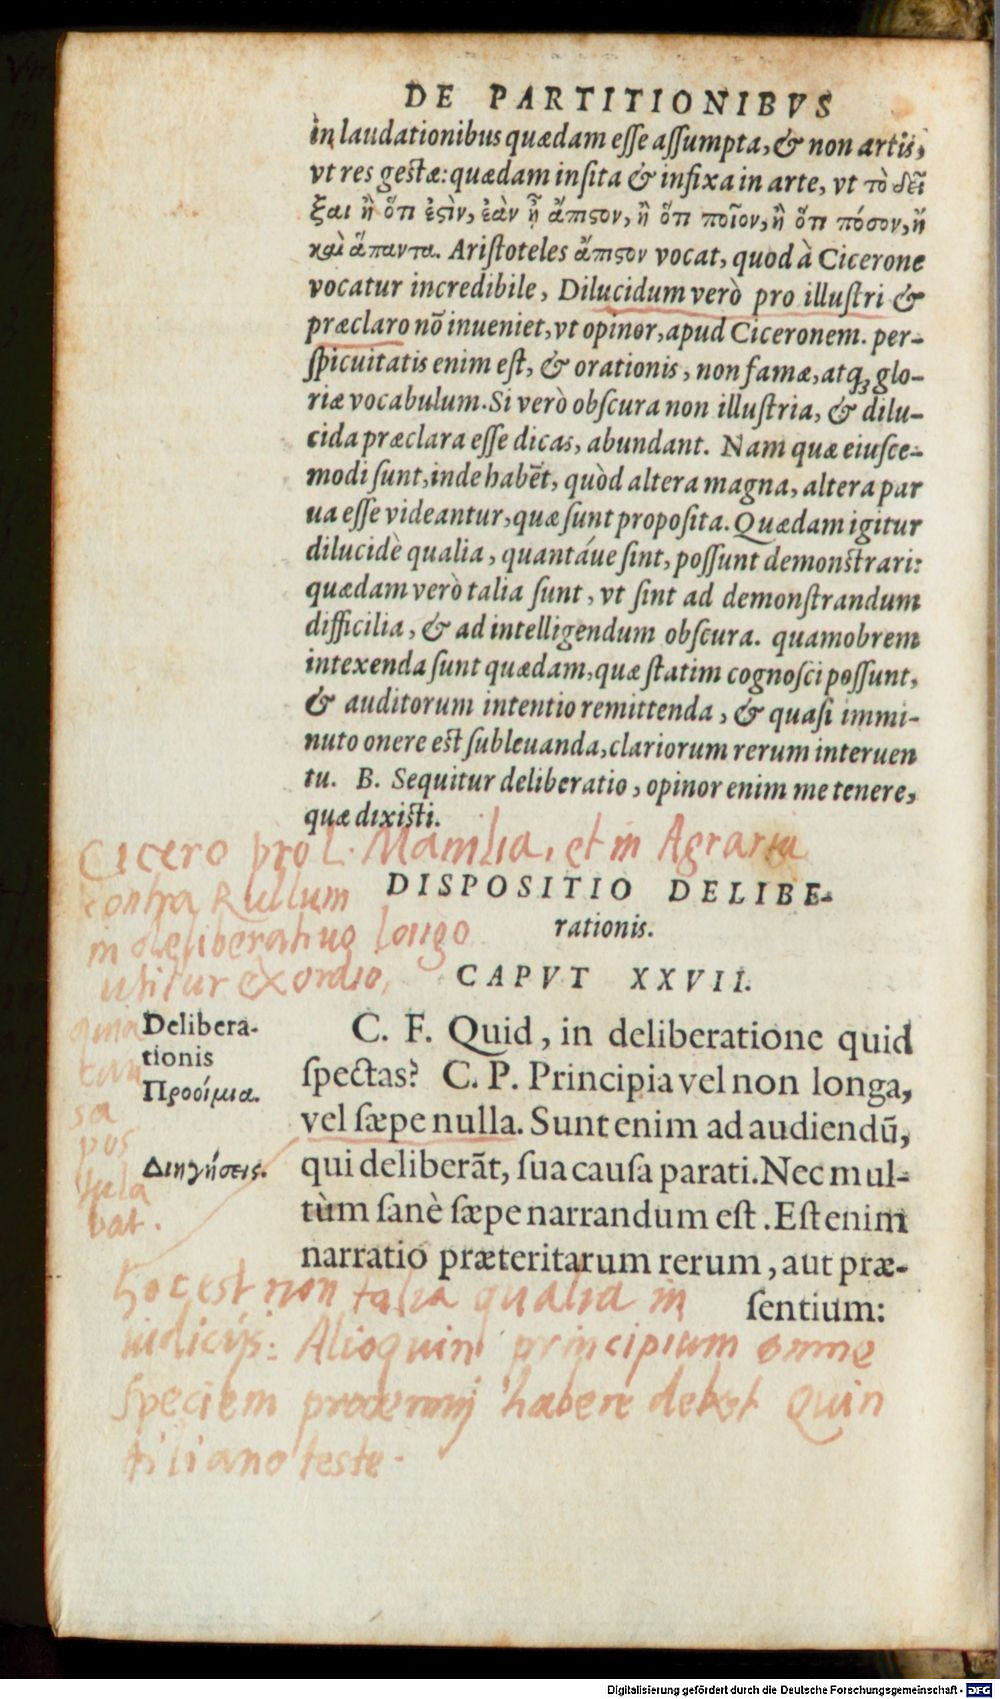 DE PARTITIONIBVS
in laudationibus quædam esse assumpta, & non artis,
vt res gestæ: quædam insita & infixa in arte, vt τὸ δεῖ
ξαι ἢ ὅτι ἐστὶν, ἐὰν ᾖ ἄπιστον, ἢ ὅτι ποῖον, ἢ ὅτι πόσον, ἢ
καὶ ἅπαντα. Aristoteles ἄπιστον vocat, quod à Cicerone
vocatur incredibile, Dilucidum verò pro illustri &
præclaro nō inueniet, vt opinor, apud Ciceronem. per-
spicuitatis enim est, & orationis, non famæ, atq; glo-
riæ vocabulum. Si verò obscura non illustria, & dilu-
cida præclara esse dicas, abundant. Nam quæ eiusce-
modi sunt, inde habēt, quòd altera magna, altera par
ua esse videantur, quæ sunt proposita. Quædam igitur
dilucidè qualia, quantáue sint, possunt demonstrari:
quædam verò talia sunt, vt sint ad demonstrandum
difficilia, & ad intelligendum obscura. quamobrem
intexenda sunt quædam, quæ statim cognosci possunt,
& auditorum intentio remittenda, & quasi immi-
nuto onere est subleuanda, clariorum rerum interuen
tu. B. Sequitur deliberatio, opinor enim me tenere,
quæ dixisti.
Cicero pro L. Manilia, et in Agraria
contra Rullum
in deliberatiuo longo
utitur exordio,
quia
cau
sa
pos
tula
bat.
DISPOSITIO DELIBE-
rationis.
CAPVT XXVII.
Delibera-
tionis
Προοίμια.
Διηγήσεις.
C. F. Quid, in deliberatione quid
spectas? C. P. Principia vel non longa,
vel sæpe nulla. Sunt enim ad audiendū,
qui deliberāt, sua causa parati. Nec mul-
tùm sanè sæpe narrandum est. Est enim
narratio præteritarum rerum, aut præ-
sentium:
hoc est non talia qualia in
iudicijs: Alioquin principium omne
speciem prooemij habere debet Quin
tiliano teste.
Digitalisierung gefördert durch die Deutsche Forschungsgemeinschaft - DFG